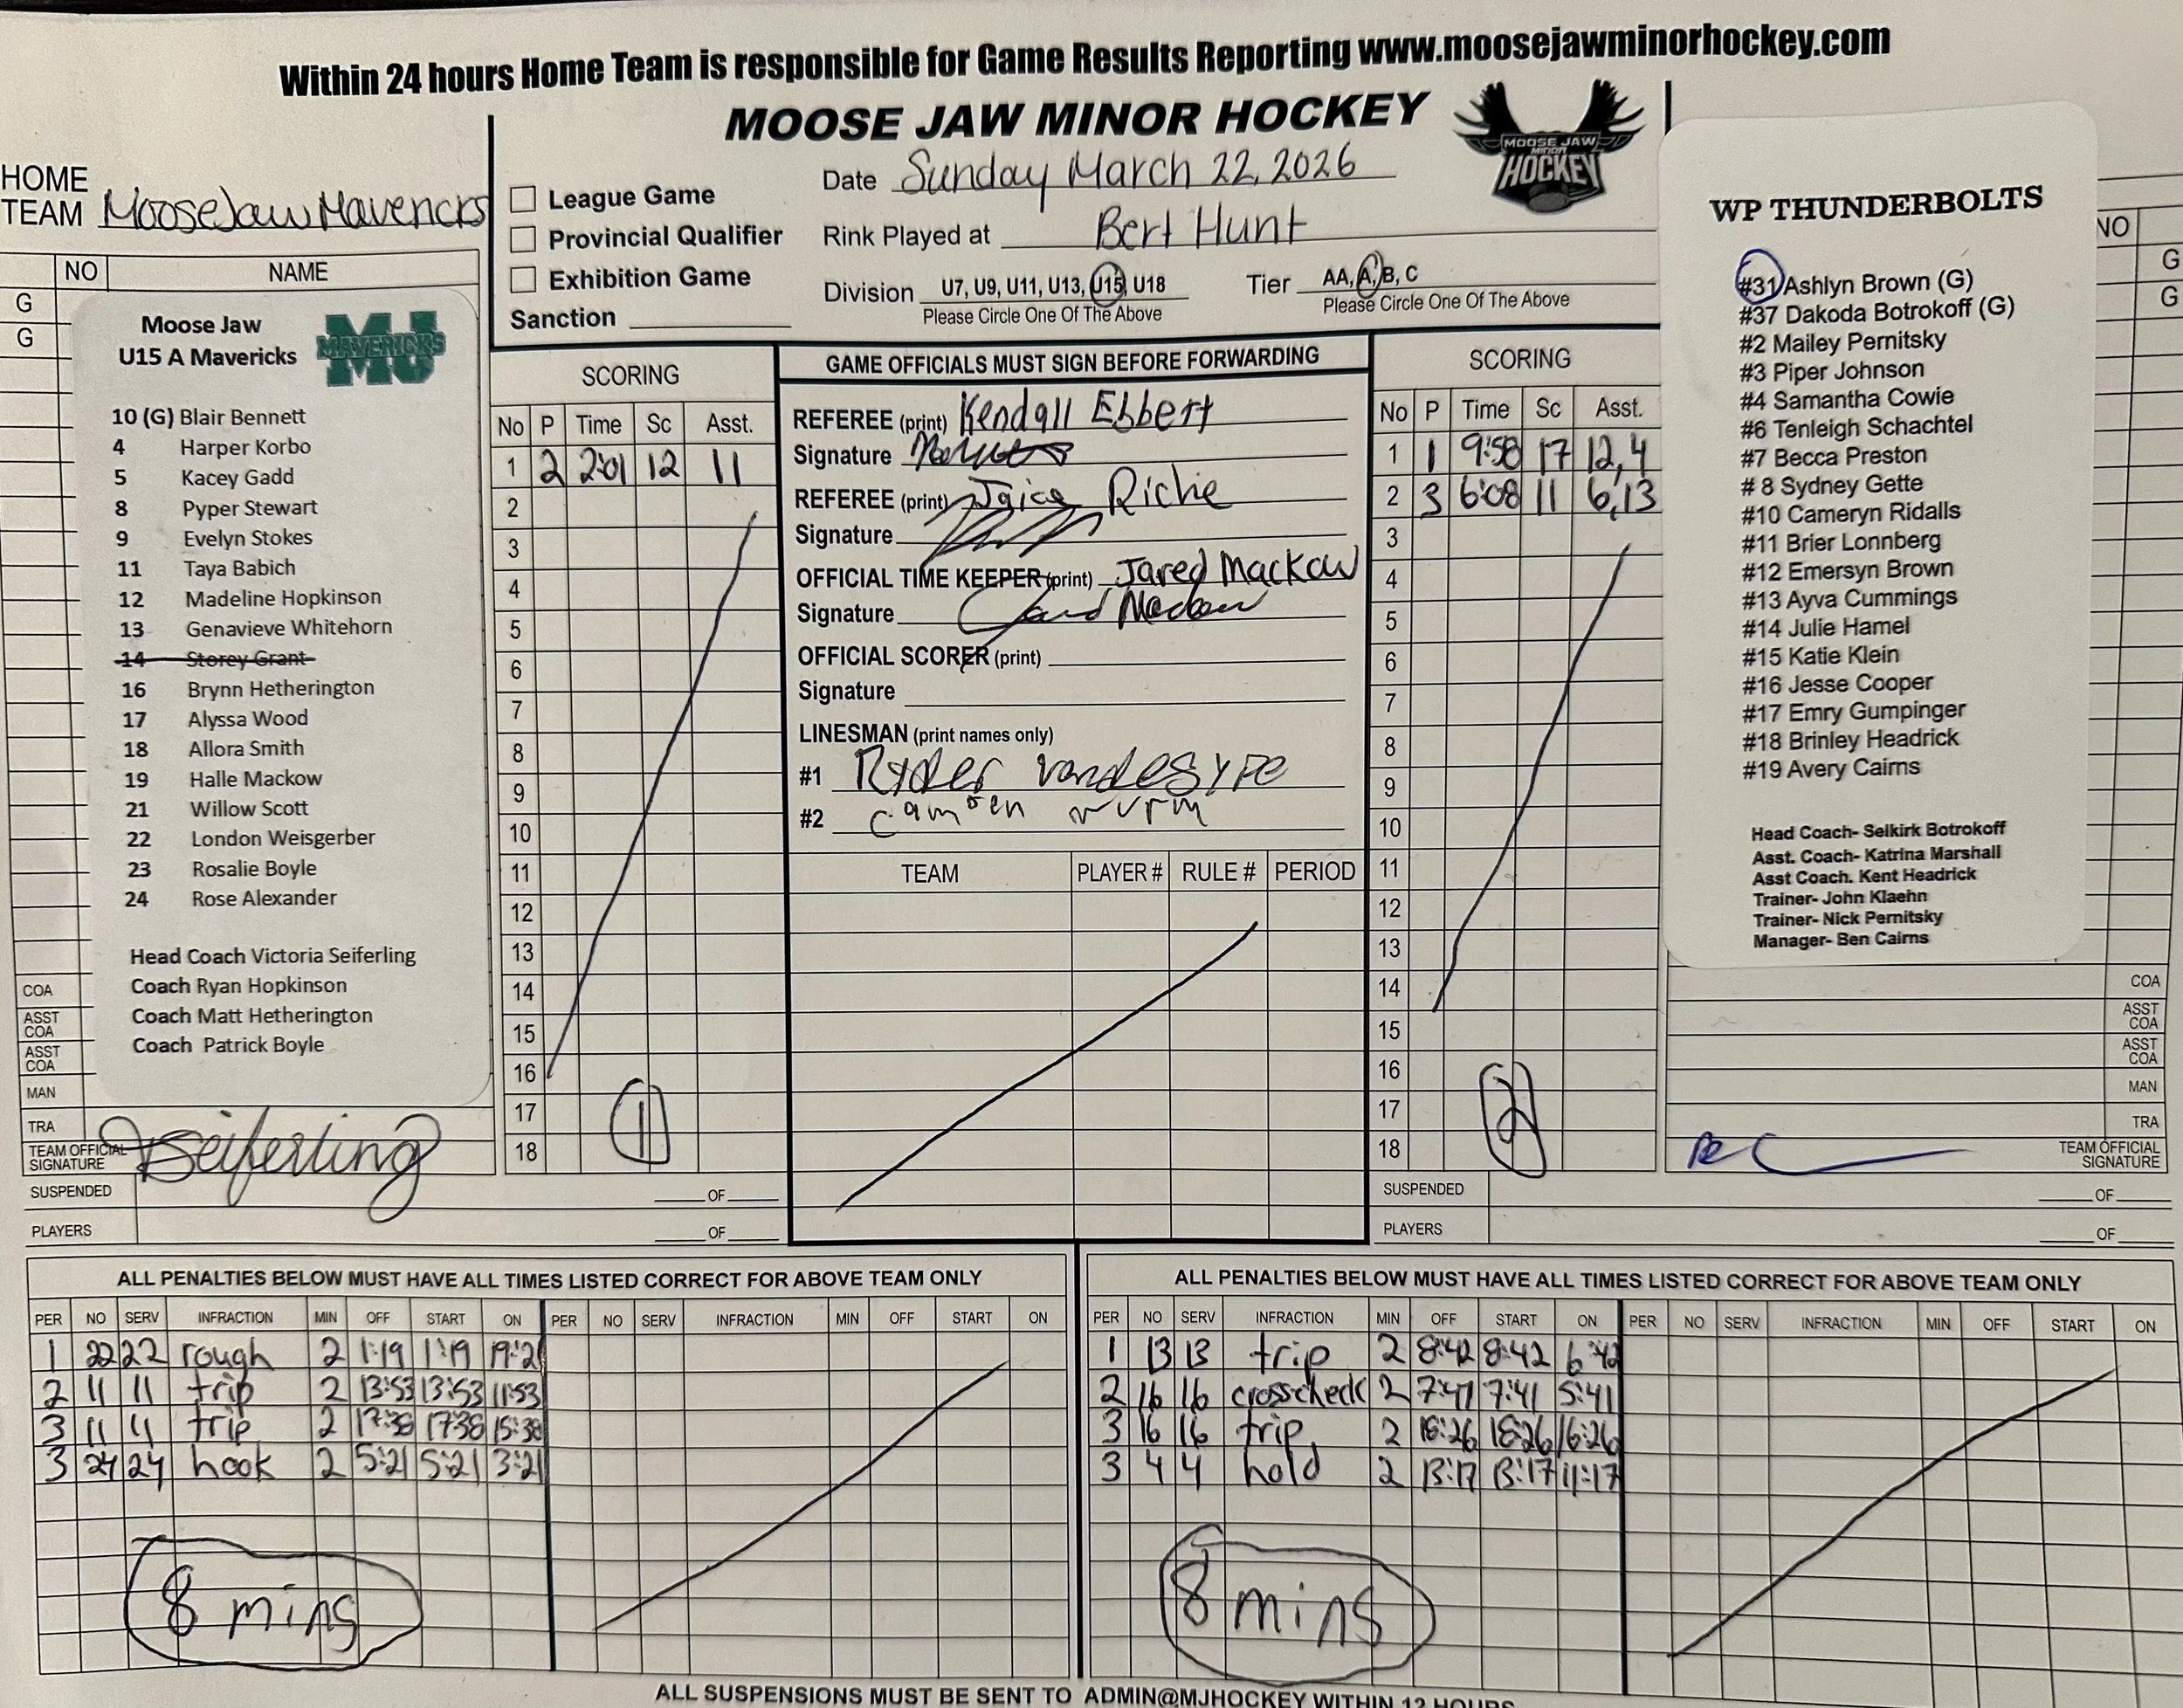 Within 24 hours Home Team is responsible for Game Results Reporting www.moosejawminorhockey.com
MOOSE JAW MINOR HOCKEY
MOOSE JAW
MINOR
HOCKEY
HOME
TEAM MooseJaw Mavericks
League Game
Provincial Qualifier
Exhibition Game
Sanction
Date Sunday March 22, 2026
Rink Played at Bert Hunt
Division U7, U9, U11, U13, U15, U18
Please Circle One Of The Above
Tier AA, A, B, C
Please Circle One Of The Above
NO NAME
G
G
Moose Jaw
U15 A Mavericks
MJ MAVERICKS
10 (G) Blair Bennett
4 Harper Korbo
5 Kacey Gadd
8 Pyper Stewart
9 Evelyn Stokes
11 Taya Babich
12 Madeline Hopkinson
13 Genavieve Whitehorn
14 Storey Grant
16 Brynn Hetherington
17 Alyssa Wood
18 Allora Smith
19 Halle Mackow
21 Willow Scott
22 London Weisgerber
23 Rosalie Boyle
24 Rose Alexander
Head Coach Victoria Seiferling
Coach Ryan Hopkinson
Coach Matt Hetherington
Coach Patrick Boyle
COA
ASST COA
ASST COA
MAN
TRA
TEAM OFFICIAL SIGNATURE Seiferling
SUSPENDED OF
PLAYERS OF
SCORING
No P Time Sc Asst.
1 2 2:01 12 11
2
3
4
5
6
7
8
9
10
11
12
13
14
15
16
17
18
1
GAME OFFICIALS MUST SIGN BEFORE FORWARDING
REFEREE (print) Kendall Ebbert
Signature
REFEREE (print) Richie
Signature
OFFICIAL TIME KEEPER (print) Jared Mackow
Signature Jared Mackow
OFFICIAL SCORER (print)
Signature
LINESMAN (print names only)
#1 Ryder
#2 Camden
TEAM PLAYER # RULE # PERIOD
SCORING
No P Time Sc Asst.
1 1 9:58 17 12,4
2 3 6:08 11 6,13
3
4
5
6
7
8
9
10
11
12
13
14
15
16
17
18
2
NO
G
G
WP THUNDERBOLTS
#31 Ashlyn Brown (G)
#37 Dakoda Botrokoff (G)
#2 Mailey Pernitsky
#3 Piper Johnson
#4 Samantha Cowie
#6 Tenleigh Schachtel
#7 Becca Preston
# 8 Sydney Gette
#10 Cameryn Ridalls
#11 Brier Lonnberg
#12 Emersyn Brown
#13 Ayva Cummings
#14 Julie Hamel
#15 Katie Klein
#16 Jesse Cooper
#17 Emry Gumpinger
#18 Brinley Headrick
#19 Avery Cairns
Head Coach- Selkirk Botrokoff
Asst. Coach- Katrina Marshall
Asst Coach. Kent Headrick
Trainer- John Klaehn
Trainer- Nick Pernitsky
Manager- Ben Cairns
COA
ASST COA
ASST COA
MAN
TRA
TEAM OFFICIAL SIGNATURE
SUSPENDED OF
PLAYERS OF
ALL PENALTIES BELOW MUST HAVE ALL TIMES LISTED CORRECT FOR ABOVE TEAM ONLY
PER NO SERV INFRACTION MIN OFF START ON PER NO SERV INFRACTION MIN OFF START ON
1 22 22 rough 2 1:19 1:19 19:21
2 11 11 trip 2 13:53 13:53 11:53
3 11 11 trip 2 17:38 17:38 15:38
3 24 24 hook 2 5:21 5:21 3:21
8 mins
ALL PENALTIES BELOW MUST HAVE ALL TIMES LISTED CORRECT FOR ABOVE TEAM ONLY
PER NO SERV INFRACTION MIN OFF START ON PER NO SERV INFRACTION MIN OFF START ON
1 13 13 trip 2 8:42 8:42 6:42
2 16 16 crosscheck 2 7:41 7:41 5:41
3 16 16 trip 2 18:26 18:26 16:26
3 4 4 hold 2 13:17 13:17 11:17
8 mins
ALL SUSPENSIONS MUST BE SENT TO ADMIN@MJHOCKEY WITHIN 12 HOURS